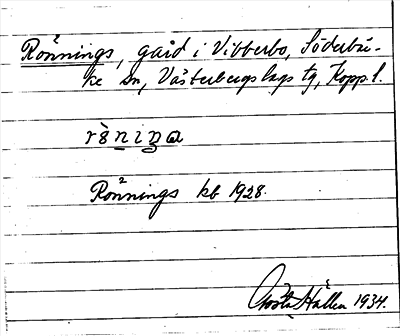 Rönnings, gård i Vibberbo, Söderbär-
ke sn, Västerbergslags tg, Kopp. l.
Rönnings kb 1928.
Gösta Hallen 1934.